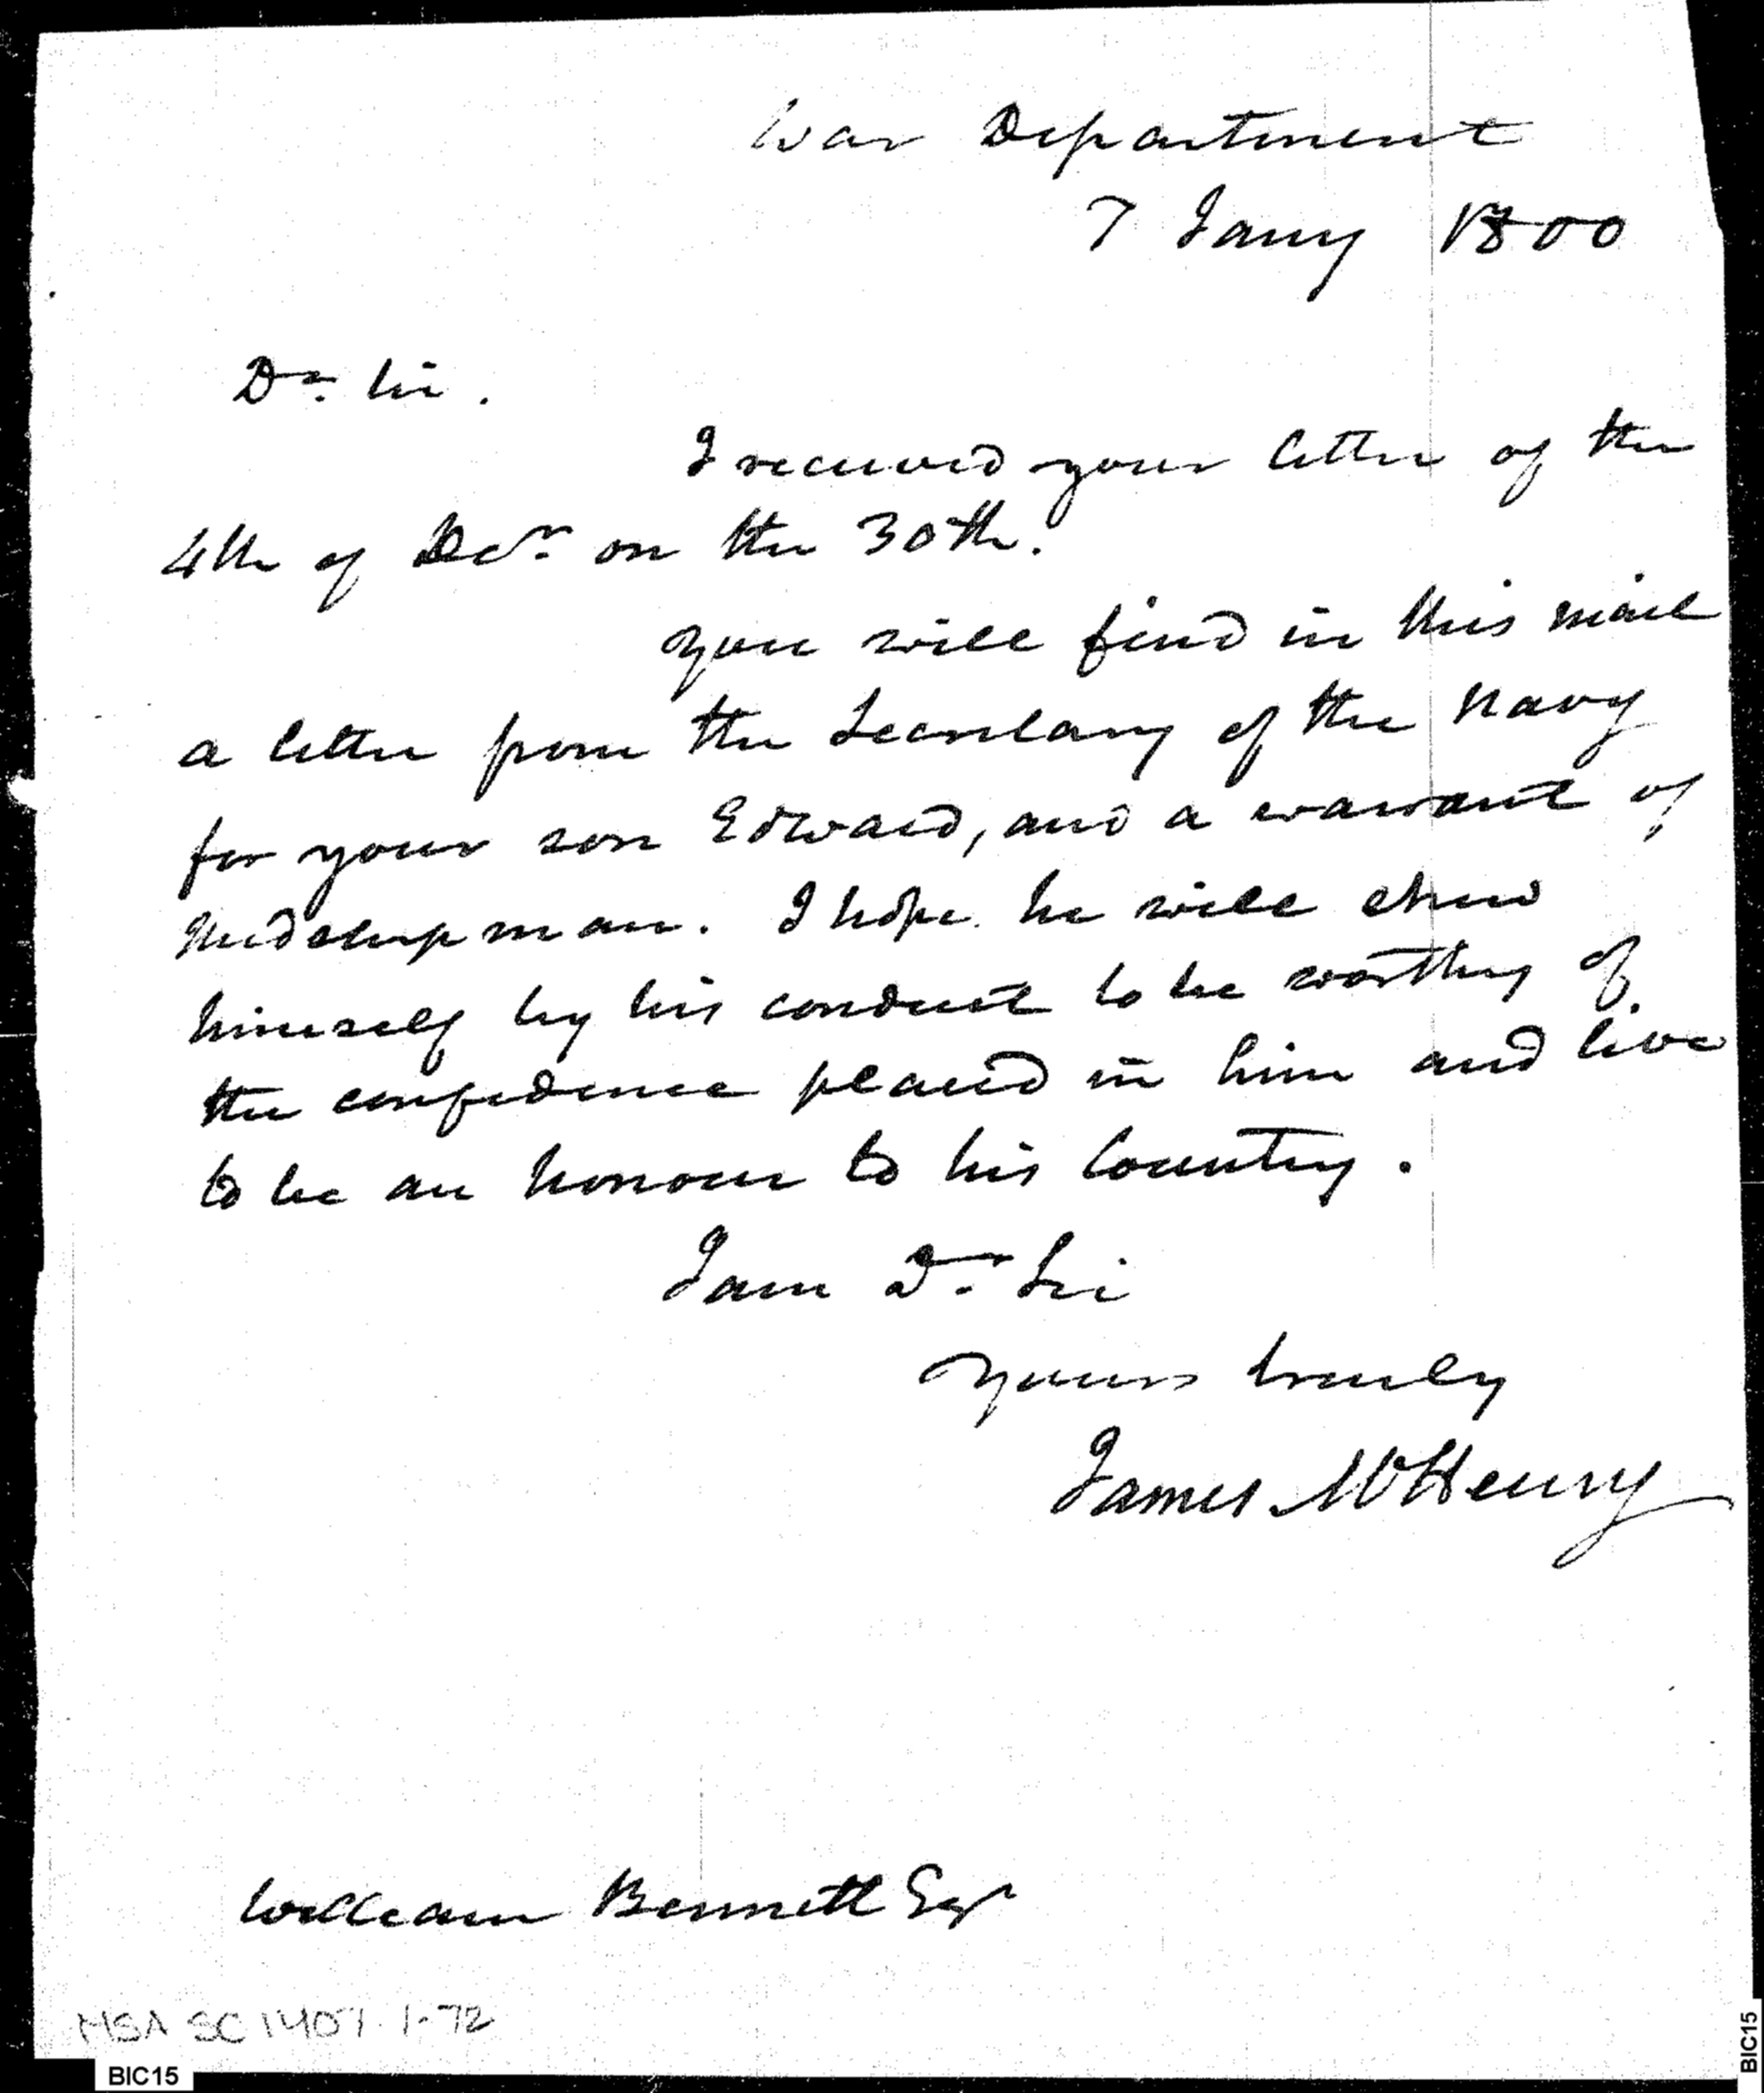 War Department
7 Jany 1800
Dr. Sir.
I received your letter of the
4th of Decr. on the 30th.
you will find in this mail
a letter from the Secretary of the Navy
for your son Edward, and a warrant of
Midshipman. I hope he will shew
himself by his conduct to be worthy of
the confidence placed in him and live
to be an honour to his Country.
I am Dr. Sir
yours truly
James McHenry
William Bennett Esqr
MSA SC 1407-1-72
BIC15
BIC15